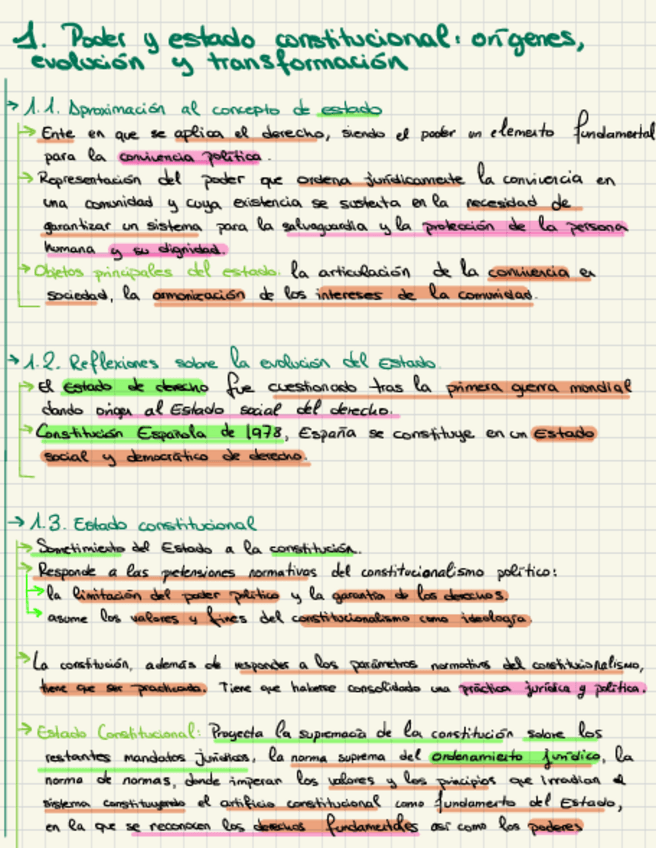 1. Poder y estado constitucional: orígenes,
evolución y transformación
1.1. Aproximación al concepto de estado
Ente en que se aplica el derecho, siendo el poder un elemento fundamental
para la convivencia política.
Representación del poder que ordena jurídicamente la convivencia en
una comunidad y cuya existencia se sustenta en la necesidad de
garantizar un sistema para la salvaguardia y la protección de la persona
humana y su dignidad.
Objetos principales del estado: la articulación de la convivencia en
sociedad, la armonización de los intereses de la comunidad.
1.2. Reflexiones sobre la evolución del Estado.
El estado de derecho fue cuestionado tras la primera guerra mundial
dando origen al Estado social del derecho.
Constitución Española de 1978, España se constituye en un Estado
social y democrático de derecho.
1.3. Estado constitucional
Sometimiento del Estado a la constitución.
Responde a las pretensiones normativas del constitucionalismo político:
la limitación del poder político y la garantía de los derechos.
asume los valores y fines del constitucionalismo como ideología.
La constitución, además de responder a los parámetros normativos del constitucionalismo,
tiene que ser practicada. Tiene que haberse consolidado una práctica jurídica y política.
Estado Constitucional: Proyecta la supremacía de la constitución sobre los
restantes mandatos jurídicos, la norma suprema del ordenamiento jurídico, la
norma de normas, donde imperan los valores y los principios que irradian el
sistema constituyendo el artificio constitucional como fundamento del Estado,
en la que se reconocen los derechos fundamentales así como los poderes